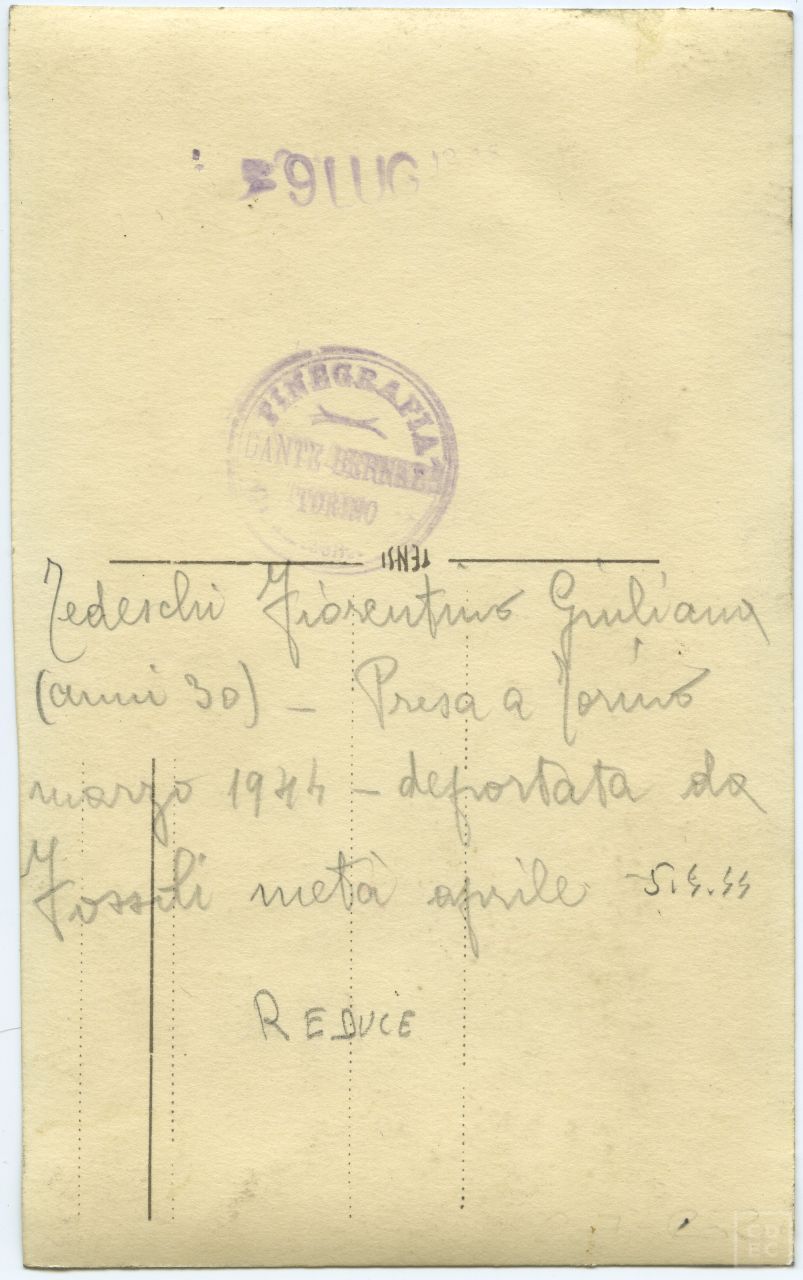 9 LUG
FINEGRAFIA
DANTE
TORINO
TENSI
Tedeschi Fiorentino Giuliana
(anni 30) - Presa a Torino
marzo 1944 - deportata da
Fossili metà aprile - 5.4.44
REDUCE
CD
EC